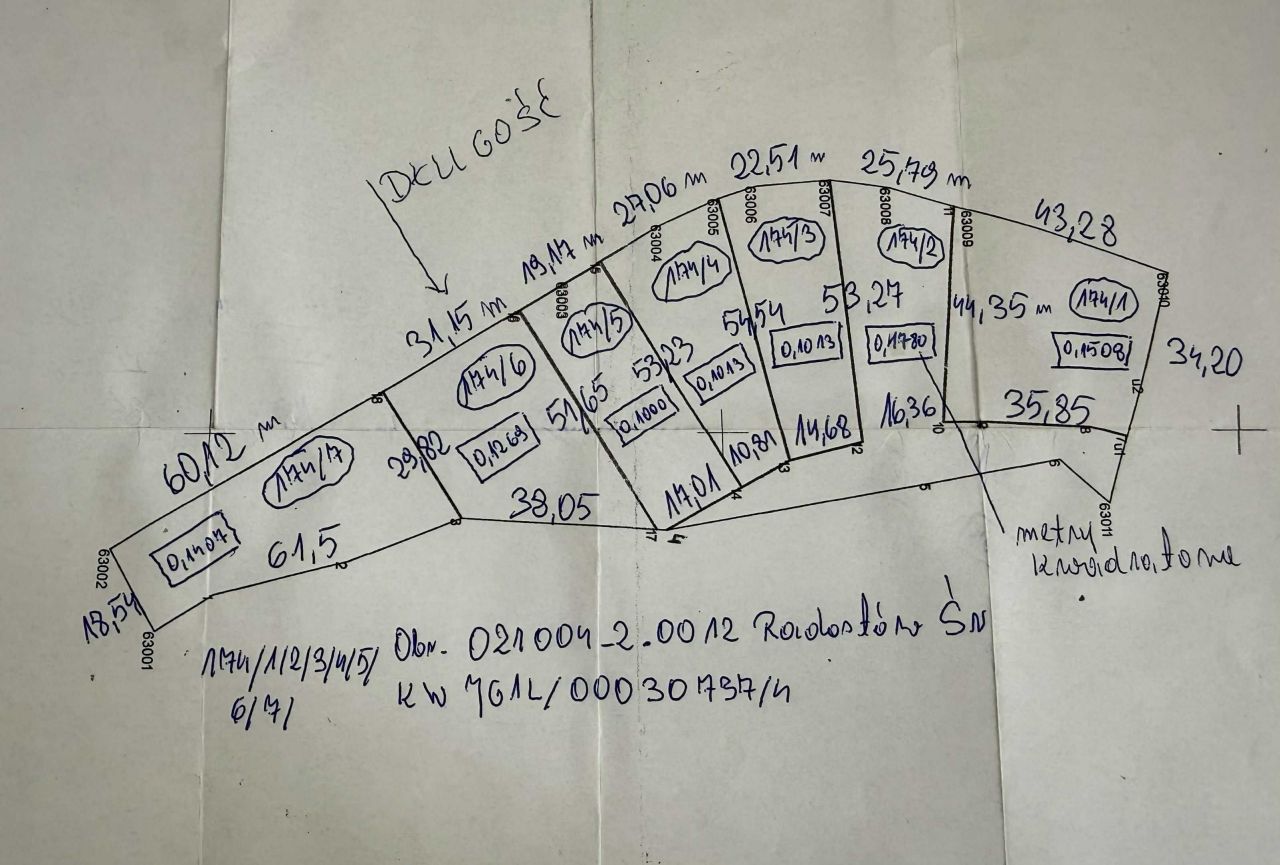 DŁUGOŚĆ
22,51 m
25,79 m
27,06 m
43,28
19,17 m
31,15 m
60,12 m
63005
63006
63007
63008
11
63009
63010
63004
63003
63002
63001
63011
174/3
174/2
174/4
174/1
174/5
174/6
174/7
44,35 m
53,27
54,54
53,23
51,65
29,82
34,20
0,1013
0,1508
0,1013
0,1000
0,1269
0,1407
35,85
16,36
14,68
10,81
17,01
38,05
61,5
18,54
u2
u1
10
9
8
12
13
14
17
4
5
6
18
3
2
metry
kwadratowe
174/1/2/3/4/5/
6/7/
Obr. 021004_2.0012 Radostów Śr
KW JG1L/00030737/4